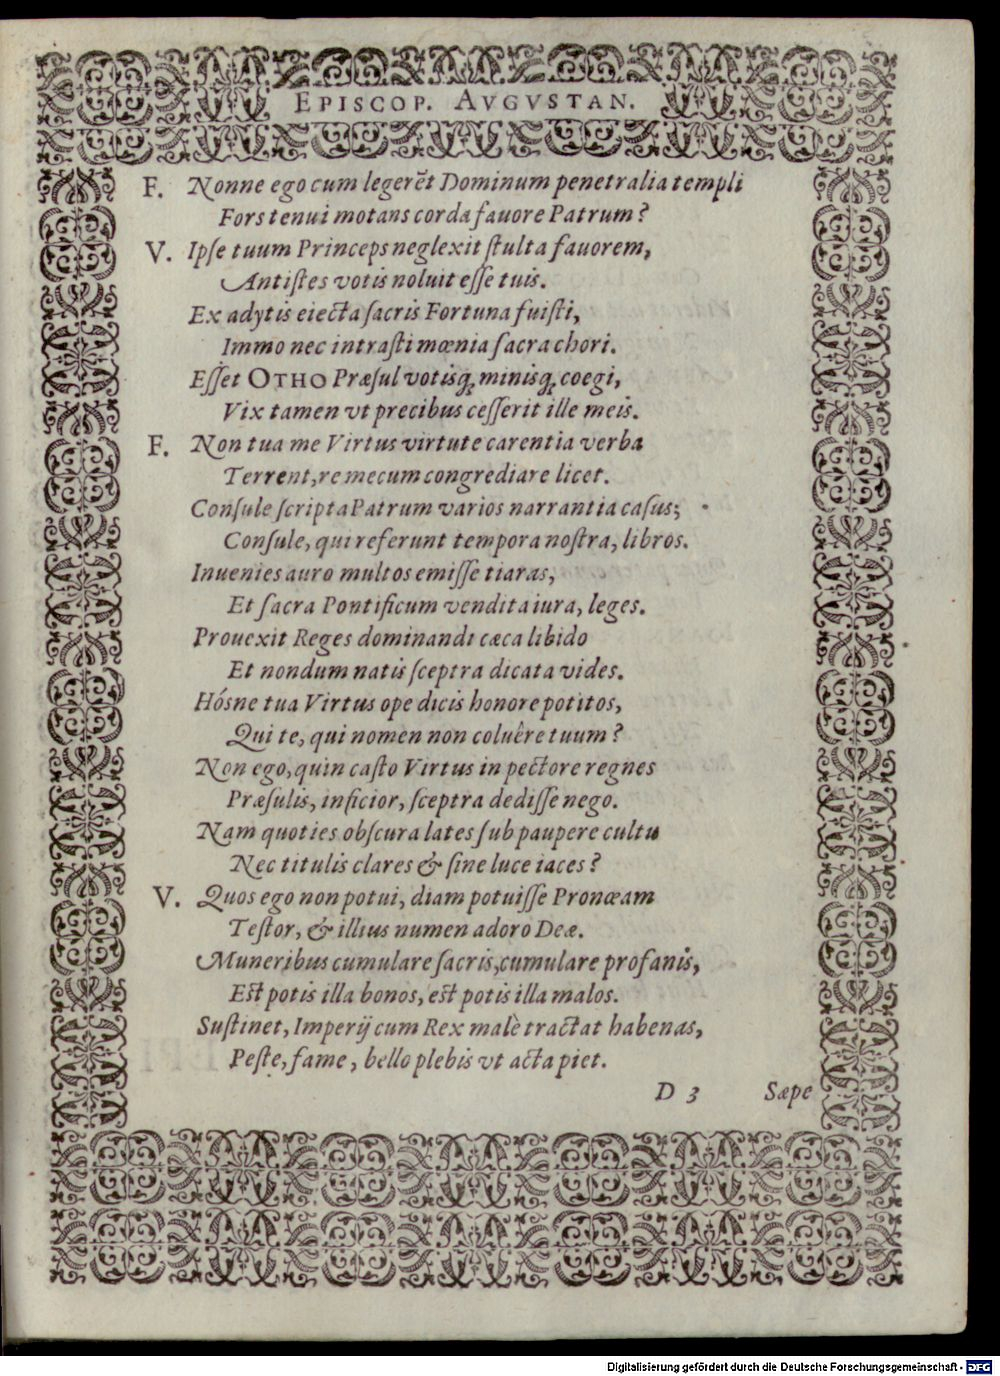 EPISCOP. AVGVSTAN.
F. Nonne ego cum legerẽt Dominum penetralia templi
Fors tenui motans corda fauore Patrum?
V. Ipſe tuum Princeps neglexit ſtulta fauorem,
Antiſtes votis noluit eſſe tuis.
Ex adytis eiecta ſacris Fortuna fuiſti,
Immo nec intraſti mœnia ſacra chori.
Eſſet OTHO Præſul votisq́, minisq́, coegi,
Vix tamen vt precibus ceſſerit ille meis.
F. Non tua me Virtus virtute carentia verba
Terrent, re mecum congrediare licet.
Conſule ſcripta Patrum varios narrantia caſus;
Conſule, qui referunt tempora noſtra, libros.
Inuenies auro multos emiſſe tiaras,
Et ſacra Pontificum vendita iura, leges.
Prouexit Reges dominandi cæca libido
Et nondum natis ſceptra dicata vides.
Hósne tua Virtus ope dicis honore potitos,
Qui te, qui nomen non coluêre tuum?
Non ego, quin caſto Virtus in pectore regnes
Præſulis, inficior, ſceptra dediſſe nego.
Nam quoties obſcura lates ſub paupere cultu
Nec titulis clares & ſine luce iaces?
V. Quos ego non potui, diam potuiſſe Pronœam
Teſtor, & illius numen adoro Deæ.
Muneribus cumulare ſacris, cumulare profanis,
Eſt potis illa bonos, eſt potis illa malos.
Suſtinet, Imperij cum Rex malè tractat habenas,
Peſte, fame, bello plebis vt acta piet.
D 3 Sæpe
Digitalisierung gefördert durch die Deutsche Forschungsgemeinschaft - DFG